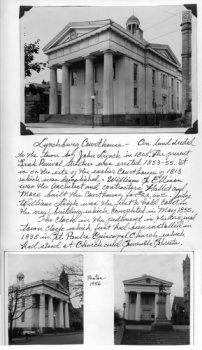 Lynchburg Courthouse - On land deeded
to the town by John Lynch in 1805, the present
Greek Revival structure was erected 1853-55. It
is on the site of the earlier Courthouse of 1813
which was demolished. William S. Ellison
was the Architect and contractors Hallet and
Mace built the Courthouse for
William Leigh was the first to hold court in
the new building which completed in May 1855.
The clock in the pediment is the original
town clock which first had been installed in
1835 in St. Paul's Episcopal Church which
had stood at Church and Seventh Streets.
Photos
1956